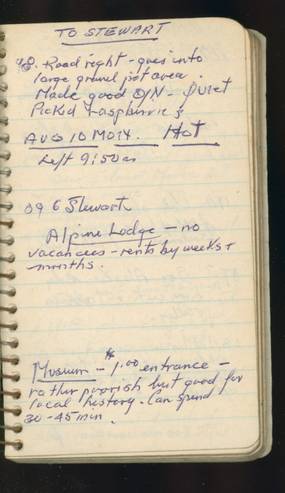 TO STEWART
Road right - goes into
large gravel pit area.
Made good O/N - Quiet
Picked raspberries
AUG 10 MON. Hot
Left 9:50am
096 Stewart
Alpine Lodge - no
vacancies - rents by weeks +
months.
Museum - $1.00 entrance -
rather poorish but good for
local history. Can spend
30-45 min.